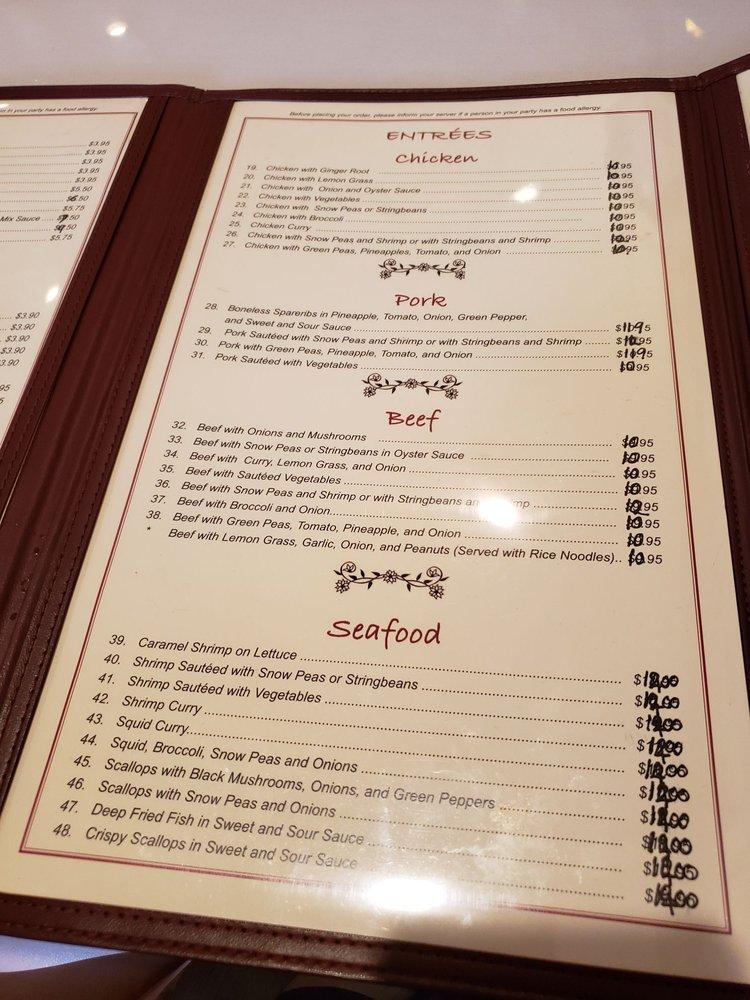 in your party has a food allergy.
$3.95
$3.95
$3.95
$3.95
$3.95
$5.50
$5.75
Mix Sauce
$5.75
$3.90
$3.90
$3.90
$3.90
3.90
Before placing your order, please inform your server if a person in your party has a food allergy.
ENTRÉES
Chicken
19. Chicken with Ginger Root 10.95
20. Chicken with Lemon Grass 10.95
21. Chicken with Onion and Oyster Sauce 10.95
22. Chicken with Vegetables 10.95
23. Chicken with Snow Peas or Stringbeans 10.95
24. Chicken with Broccoli 10.95
25. Chicken Curry 10.95
26. Chicken with Snow Peas and Shrimp or with Stringbeans and Shrimp 10.95
27. Chicken with Green Peas, Pineapples, Tomato, and Onion 10.95
Pork
28. Boneless Spareribs in Pineapple, Tomato, Onion, Green Pepper,
and Sweet and Sour Sauce $11.95
29. Pork Sautéed with Snow Peas and Shrimp or with Stringbeans and Shrimp $10.95
30. Pork with Green Peas, Pineapple, Tomato, and Onion $11.95
31. Pork Sautéed with Vegetables 10.95
Beef
32. Beef with Onions and Mushrooms 10.95
33. Beef with Snow Peas or Stringbeans in Oyster Sauce 10.95
34. Beef with Curry, Lemon Grass, and Onion 10.95
35. Beef with Sautéed Vegetables 10.95
36. Beef with Snow Peas and Shrimp or with Stringbeans and Shrimp
37. Beef with Broccoli and Onion 10.95
38. Beef with Green Peas, Tomato, Pineapple, and Onion 10.95
* Beef with Lemon Grass, Garlic, Onion, and Peanuts (Served with Rice Noodles).. 10.95
Seafood
39. Caramel Shrimp on Lettuce
40. Shrimp Sautéed with Snow Peas or Stringbeans
41. Shrimp Sautéed with Vegetables
42. Shrimp Curry
43. Squid Curry
44. Squid, Broccoli, Snow Peas and Onions
45. Scallops with Black Mushrooms, Onions, and Green Peppers
46. Scallops with Snow Peas and Onions
47. Deep Fried Fish in Sweet and Sour Sauce
48. Crispy Scallops in Sweet and Sour Sauce